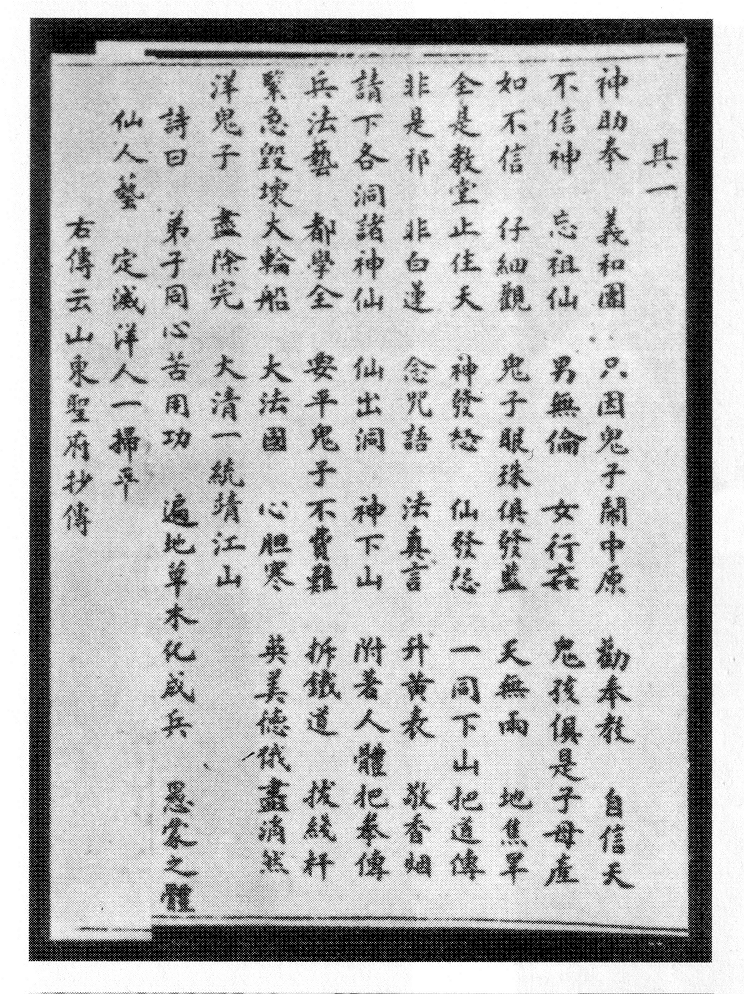 其一
神助拳 義和團 只因鬼子鬧中原 勸奉教 自信天
不信神 忘祖仙 男無倫 女行姦 鬼孩俱是子母產
如不信 仔細觀 鬼子眼珠俱發藍 天無雨 地焦旱
全是教堂止住天 神發怒 仙發怨 一同下山把道傳
非是邪 非白蓮 念咒語 法真言 升黃表 敬香烟
請下各洞諸神仙 仙出洞 神下山 附著人體把拳傳
兵法藝 都學全 要平鬼子不費難 拆鐵道 拔綫杆
緊急毀壞大輪船 大法國 心胆寒 英美德俄盡消然
洋鬼子 盡除完 大清一統靖江山
詩曰 弟子同心苦用功 遍地草木化成兵 愚蒙之體
仙人藝 定滅洋人一掃平
右傳云山東聖府抄傳